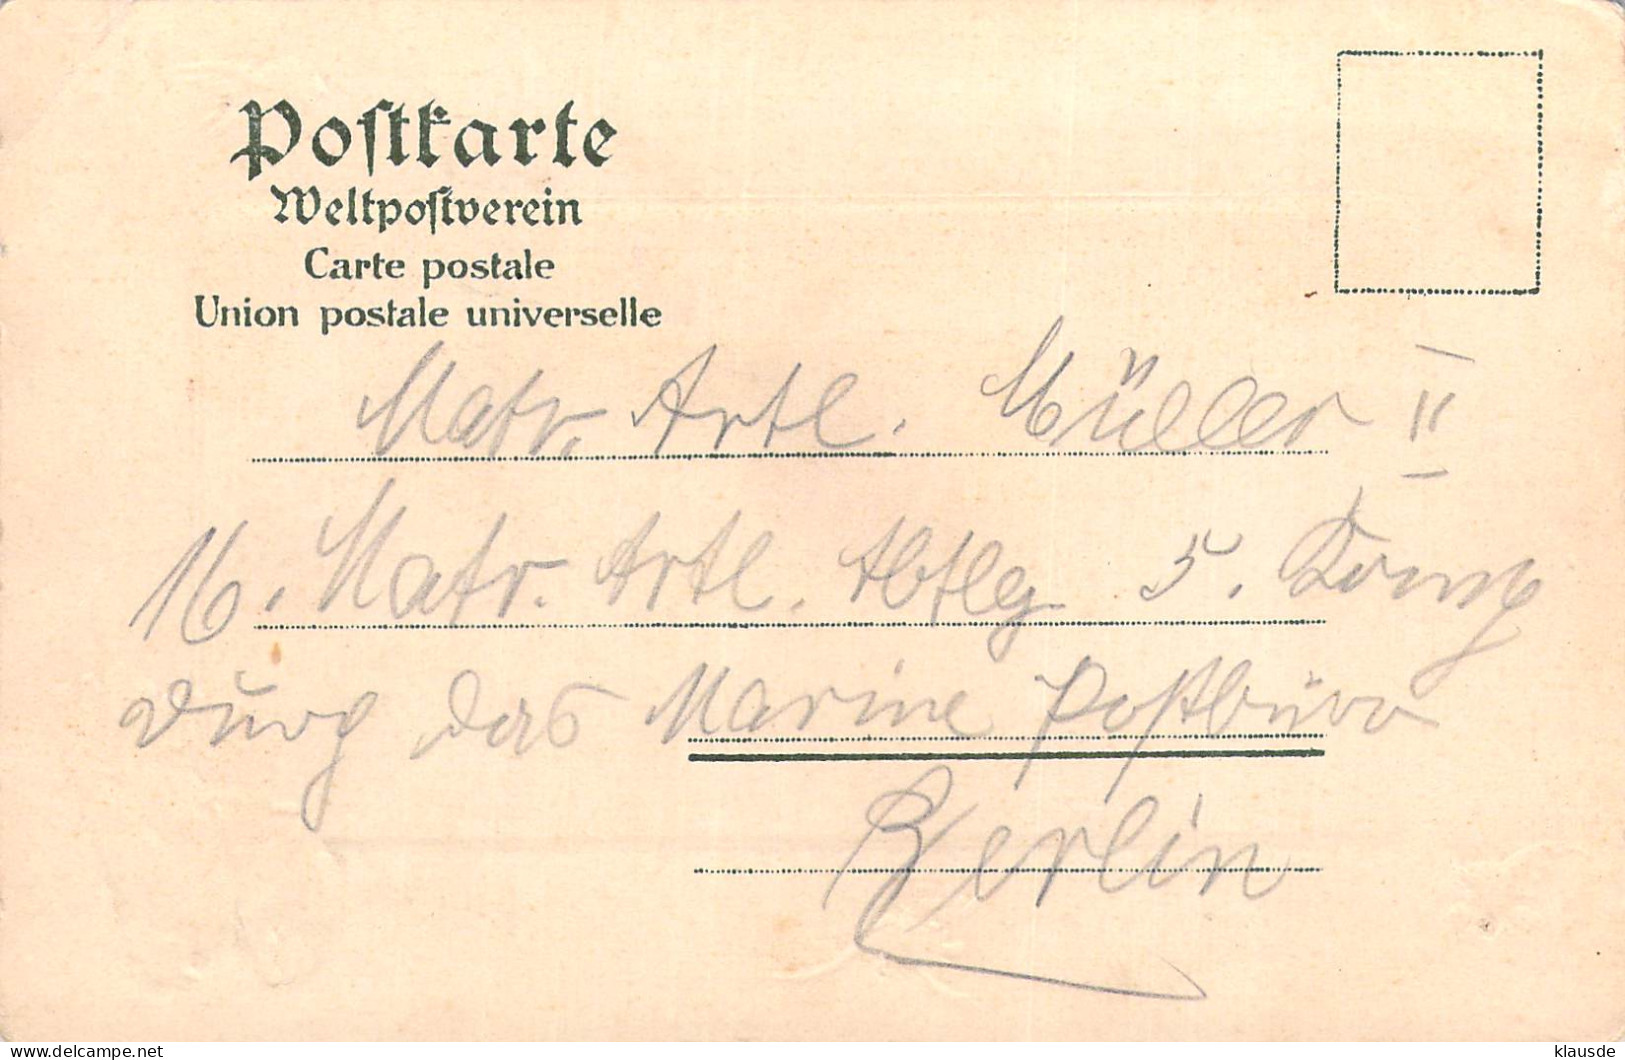 Postkarte
Weltpostverein
Carte postale
Union postale universelle
Matr. Artl. Müller II
16. Matr. Artl. Abtlg 5. Komp
durch das Marine Postbüro
Berlin
www.delcampe.net
klausde